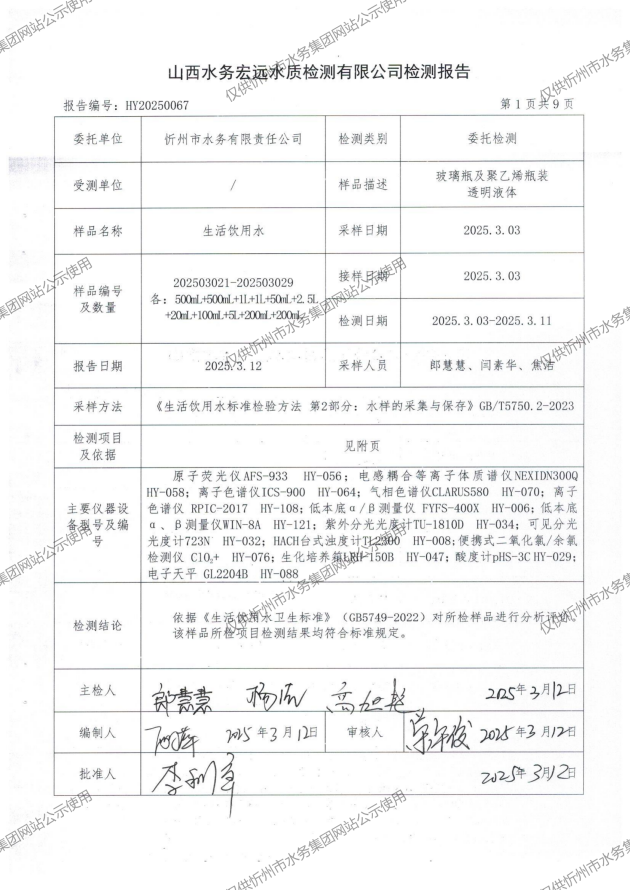 山西水务宏远水质检测有限公司检测报告
报告编号：HY20250067 第 1 页共 9 页
委托单位 忻州市水务有限责任公司 检测类别 委托检测
受测单位 / 样品描述 玻璃瓶及聚乙烯瓶装
透明液体
样品名称 生活饮用水 采样日期 2025.3.03
样品编号
及数量
202503021-202503029
各：500mL+500mL+1L+1L+50mL+2.5L
+20mL+100mL+5L+200mL+200mL
接样日期 2025.3.03
检测日期 2025.3.03-2025.3.11
报告日期 2025.3.12 采样人员 郎慧慧、闫素华、焦洁
采样方法 《生活饮用水标准检验方法 第2部分：水样的采集与保存》GB/T5750.2-2023
检测项目
及依据
见附页
主要仪器设
备型号及编
号
原子荧光仪AFS-933 HY-056；电感耦合等离子体质谱仪NEXIDN300Q
HY-058；离子色谱仪ICS-900 HY-064；气相色谱仪CLARUS580 HY-070；离子
色谱仪 RPIC-2017 HY-108；低本底α/β测量仪 FYFS-400X HY-006；低本底
α、β测量仪WIN-8A HY-121；紫外分光光度计TU-1810D HY-034；可见分光
光度计723N HY-032；HACH台式浊度计TL2300 HY-008;便携式二氧化氯/余氯
检测仪 ClO₂+ HY-076；生化培养箱LRH-150B HY-047；酸度计pHS-3C HY-029；
电子天平 GL2204B HY-088
检测结论
依据《生活饮用水卫生标准》（GB5749-2022）对所检样品进行分析评价，
该样品所检项目检测结果均符合标准规定。
主检人 郎慧慧 2025年3月12日
编制人 2025年3月12日 审核人 2025年3月12日
批准人 2025年3月12日
仅供忻州市水务集团网站公示使用